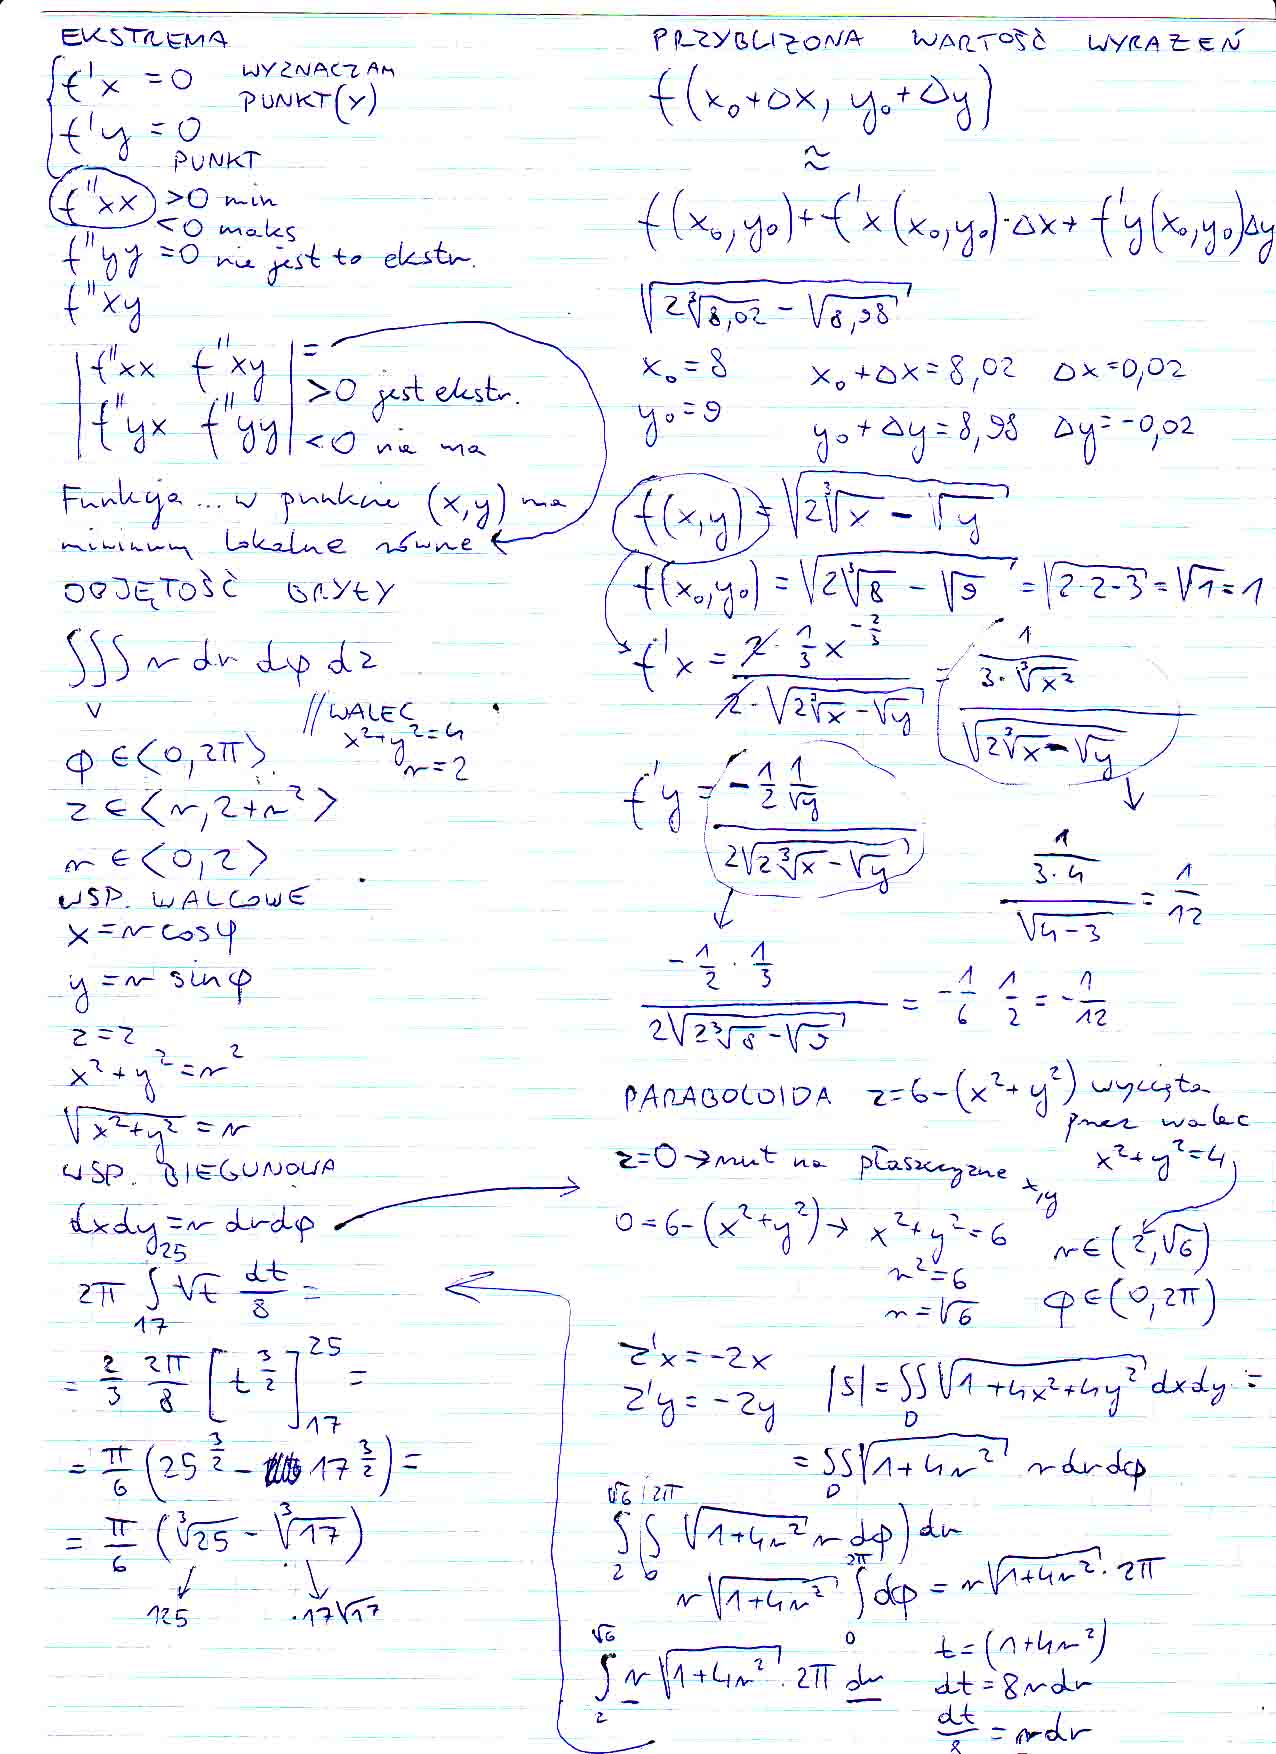 EKSTREMA
f'x = 0 WYZNACZAM
PUNKT(Y)
f'y = 0
PUNKT
f''xx >0 min
<0 maks
f''yy =0 nie jest to ekstr.
f''xy
|f''xx f''xy| =
>0 jest ekstr.
|f''yx f''yy| <0 nie ma
Funkcja ... w punkcie (x,y) ma
minimum lokalne równe
OBJĘTOŚĆ BRYŁY
∫∫∫ r dr dφ dz
V
//WALEC
x²+y²=4
r=2
φ ∈ <0,2π>
z ∈ <r, 2+r²>
r ∈ <0,2>
WSP. WALCOWE
x = r cosφ
y = r sinφ
z = z
x²+y² = r²
√(x²+y²) = r
WSP. BIEGUNOWA
dxdy = r dr dφ
2π ∫₁₇²⁵ √t dt/8 =
= 2/3 2π/8 [t^(3/2)]₁₇²⁵ =
= π/6 (25^(3/2) - 17^(3/2)) =
= π/6 (³√25 - ³√17)
125 17√17
PRZYBLIŻONA WARTOŚĆ WYRAŻEŃ
f(x₀+Δx, y₀+Δy)
≈
f(x₀,y₀) + f'x(x₀,y₀)·Δx + f'y(x₀,y₀)Δy
√(2³√8,02 - √8,98)
x₀ = 8 x₀+Δx = 8,02 Δx = 0,02
y₀ = 9 y₀+Δy = 8,98 Δy = -0,02
f(x,y) = √(2³√x - √y)
f(x₀,y₀) = √(2³√8 - √9) = √(2·2-3) = √1 = 1
f'x = (2·1/3 x^(-2/3))/(2·√(2³√x - √y)) = (1/(3·³√x²))/√(2³√x - √y)
f'y = (-1/2 1/√y)/(2√(2³√x - √y))
(1/(3·4))/√(4-3) = 1/12
(-1/2 · 1/3)/(2√(2³√8 - √9)) = -1/6 1/2 = -1/12
PARABOLOIDA z = 6-(x²+y²) wycięta
przez walec
x²+y²=4
z=0 → rzut na płaszczyznę x,y
0 = 6-(x²+y²) → x²+y² = 6 r ∈ (2,√6)
r² = 6
r = √6 φ ∈ (0,2π)
z'x = -2x
z'y = -2y |S| = ∫∫_D √(1+4x²+4y²) dxdy =
= ∫∫_D √(1+4r²) r dr dφ
∫₂^√6 (∫₀^2π √(1+4r²) r dφ) dr
r√(1+4r²) ∫₀^2π dφ = r√(1+4r²) · 2π
∫₂^√6 r√(1+4r²) · 2π dr
t = (1+4r²)
dt = 8r dr
dt/8 = r dr